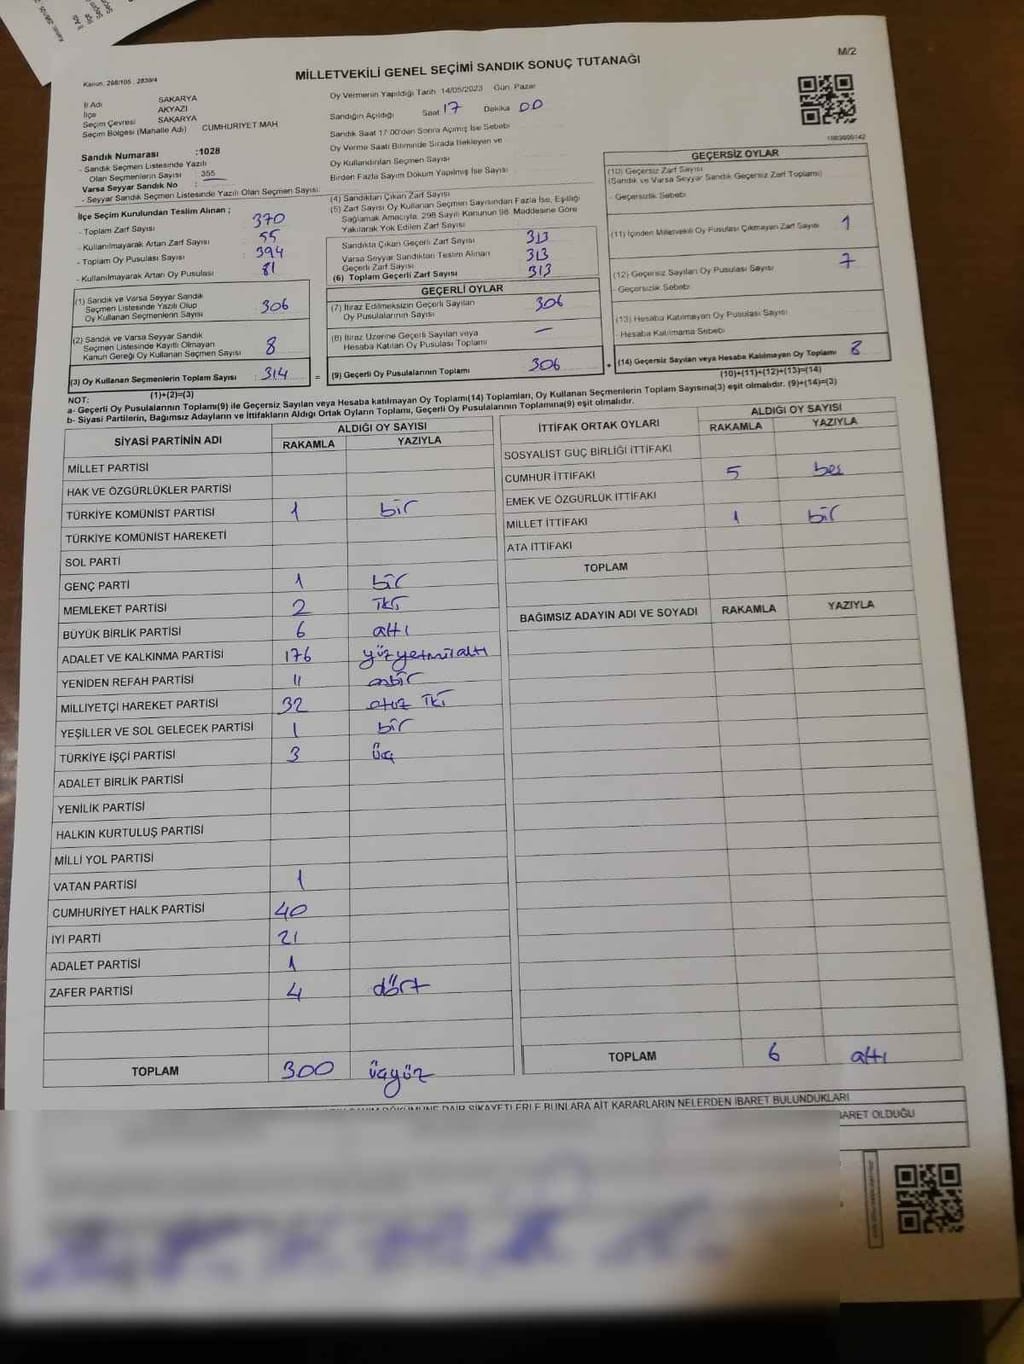 M/2
Kanun: 298/105 , 2839/4
MİLLETVEKİLİ GENEL SEÇİMİ SANDIK SONUÇ TUTANAĞI
İl Adı SAKARYA
İlçe AKYAZI
Seçim Çevresi SAKARYA
Seçim Bölgesi (Mahalle Adı) CUMHURİYET MAH
Oy Vermenin Yapıldığı Tarih 14/05/2023 Gün Pazar
Sandığın Açıldığı Saat 17 Dakika 00
Sandık Saat 17:00'den Sonra Açılmış İse Sebebi
Oy Verme Saati Bitiminde Sırada Bekleyen ve
Oy Kullandırılan Seçmen Sayısı
Birden Fazla Sayım Döküm Yapılmış İse Sayısı
Sandık Numarası :1028
- Sandık Seçmen Listesinde Yazılı
Olan Seçmenlerin Sayısı 355
Varsa Seyyar Sandık No :
- Seyyar Sandık Seçmen Listesinde Yazılı Olan Seçmen Sayısı:
İlçe Seçim Kurulundan Teslim Alınan ;
- Toplam Zarf Sayısı : 370
- Kullanılmayarak Artan Zarf Sayısı : 55
- Toplam Oy Pusulası Sayısı : 394
- Kullanılmayarak Artan Oy Pusulası : 81
(1) Sandık ve Varsa Seyyar Sandık
Seçmen Listesinde Yazılı Olup
Oy Kullanan Seçmenlerin Sayısı : 306
(2) Sandık ve Varsa Seyyar Sandık
Seçmen Listesinde Kayıtlı Olmayan
Kanun Gereği Oy Kullanan Seçmen Sayısı : 8
(3) Oy Kullanan Seçmenlerin Toplam Sayısı : 314
(1)+(2)=(3)
(4) Sandıktan Çıkan Zarf Sayısı
(5) Zarf Sayısı Oy Kullanan Seçmen Sayısından Fazla İse, Eşitliği
Sağlamak Amacıyla, 298 Sayılı Kanunun 98. Maddesine Göre
Yakılarak Yok Edilen Zarf Sayısı
Sandıkta Çıkan Geçerli Zarf Sayısı 313
Varsa Seyyar Sandıktan Teslim Alınan
Geçerli Zarf Sayısı 313
(6) Toplam Geçerli Zarf Sayısı 313
GEÇERLİ OYLAR
(7) İtiraz Edilmeksizin Geçerli Sayılan
Oy Pusulalarının Sayısı 306
(8) İtiraz Üzerine Geçerli Sayılan veya
Hesaba Katılan Oy Pusulası Toplamı —
= (9) Geçerli Oy Pusulalarının Toplamı 306
GEÇERSİZ OYLAR
(10) Geçersiz Zarf Sayısı
(Sandık ve Varsa Seyyar Sandık Geçersiz Zarf Toplamı)
- Geçersizlik Sebebi
(11) İçinden Milletvekili Oy Pusulası Çıkmayan Zarf Sayısı 1
(12) Geçersiz Sayılan Oy Pusulası Sayısı 7
- Geçersizlik Sebebi
(13) Hesaba Katılmayan Oy Pusulası Sayısı
- Hesaba Katılmama Sebebi
+ (14) Geçersiz Sayılan veya Hesaba Katılmayan Oy Toplamı 8
(10)+(11)+(12)+(13)=(14)
NOT:
a- Geçerli Oy Pusulalarının Toplam(9) ile Geçersiz Sayılan veya Hesaba katılmayan Oy Toplam(14) Toplamları, Oy Kullanan Seçmenlerin Toplam Sayısına(3) eşit olmalıdır. (9)+(14)=(3)
b- Siyasi Partilerin, Bağımsız Adayların ve İttifakların Aldığı Ortak Oyların Toplamı, Geçerli Oy Pusulalarının Toplamına(9) eşit olmalıdır.
SİYASİ PARTİNİN ADI ALDIĞI OY SAYISI
RAKAMLA YAZIYLA
MİLLET PARTİSİ
HAK VE ÖZGÜRLÜKLER PARTİSİ
TÜRKİYE KOMÜNİST PARTİSİ 1 bir
TÜRKİYE KOMÜNİST HAREKETİ
SOL PARTİ
GENÇ PARTİ 1 bir
MEMLEKET PARTİSİ 2 iki
BÜYÜK BİRLİK PARTİSİ 6 altı
ADALET VE KALKINMA PARTİSİ 176 yüzyetmişaltı
YENİDEN REFAH PARTİSİ 11 onbir
MİLLİYETÇİ HAREKET PARTİSİ 32 otuz iki
YEŞİLLER VE SOL GELECEK PARTİSİ 1 bir
TÜRKİYE İŞÇİ PARTİSİ 3 üç
ADALET BİRLİK PARTİSİ
YENİLİK PARTİSİ
HALKIN KURTULUŞ PARTİSİ
MİLLİ YOL PARTİSİ
VATAN PARTİSİ 1
CUMHURİYET HALK PARTİSİ 40
İYİ PARTİ 21
ADALET PARTİSİ 1
ZAFER PARTİSİ 4 dört
TOPLAM 300 üçyüz
İTTİFAK ORTAK OYLARI ALDIĞI OY SAYISI
RAKAMLA YAZIYLA
SOSYALİST GÜÇ BİRLİĞİ İTTİFAKI
CUMHUR İTTİFAKI 5 beş
EMEK VE ÖZGÜRLÜK İTTİFAKI
MİLLET İTTİFAKI 1 bir
ATA İTTİFAKI
TOPLAM
BAĞIMSIZ ADAYIN ADI VE SOYADI RAKAMLA YAZIYLA
TOPLAM 6 altı
DÖKÜMÜNE DAİR ŞİKAYETLERLE BUNLARA AİT KARARLARIN NELERDEN İBARET BULUNDUKLARI
İBARET OLDUĞU